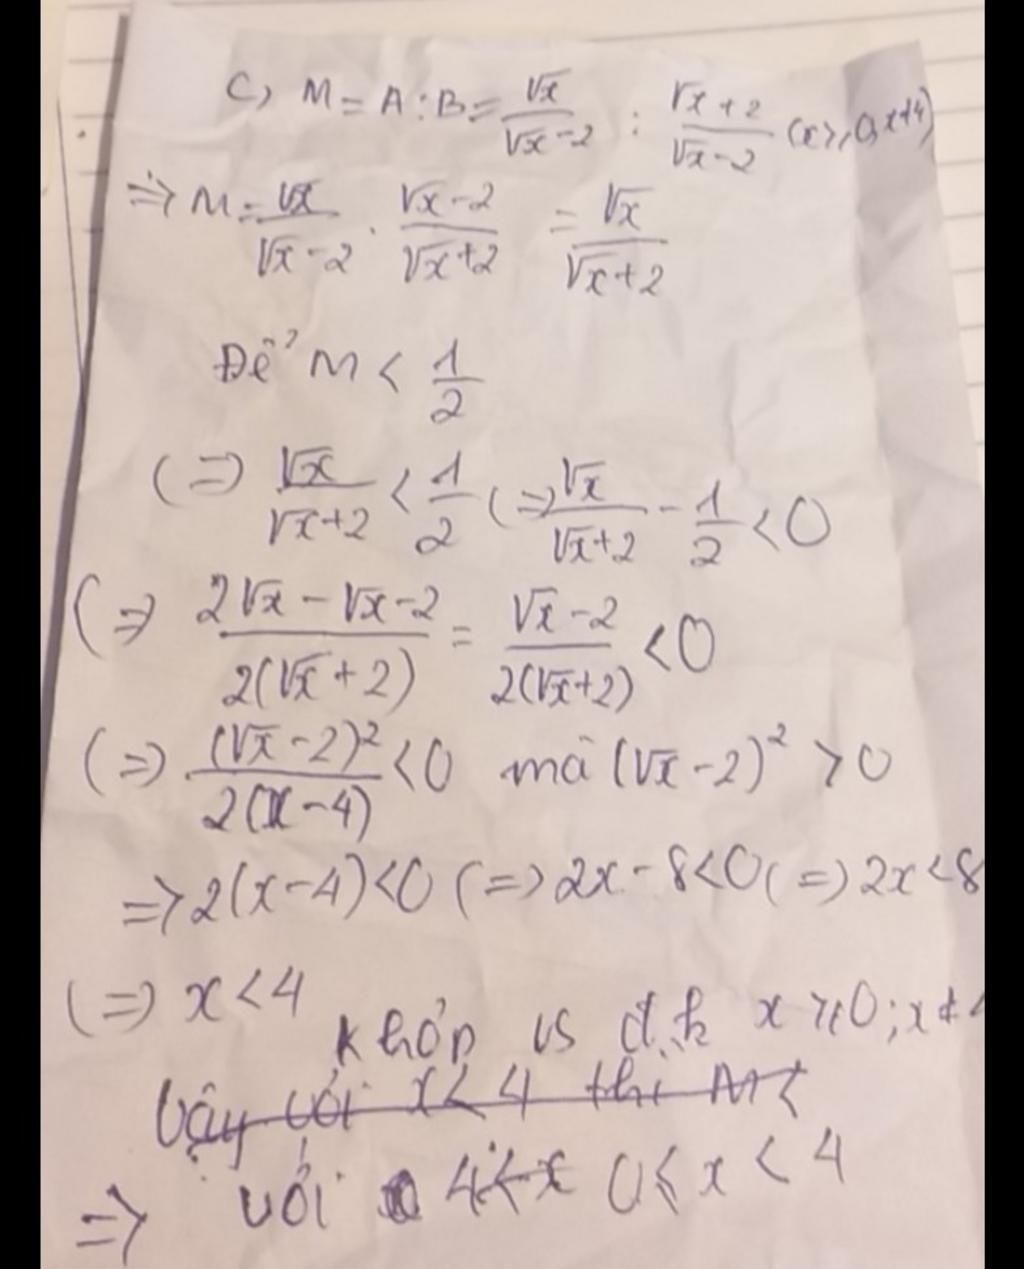 C, M = A : B = √x/(√x-2) : (√x+2)/(√x-2) (x ≥ 0, x ≠ 4)
=> M = √x/(√x-2) . (√x-2)/(√x+2) = √x/(√x+2)
Để M < 1/2
(=) √x/(√x+2) < 1/2 (=) √x/(√x+2) - 1/2 < 0
(=) (2√x-√x-2)/(2(√x+2)) = (√x-2)/(2(√x+2)) < 0
(=) (√x-2)²/(2(x-4)) < 0 mà (√x-2)² > 0
=> 2(x-4) < 0 (=> 2x-8 < 0 (=) 2x < 8
(=) x < 4
Khớp vs đ.k x ≥ 0; x ≠ 4
Vậy với x < 4 thì M <
=> với 4 < x 0 ≤ x < 4